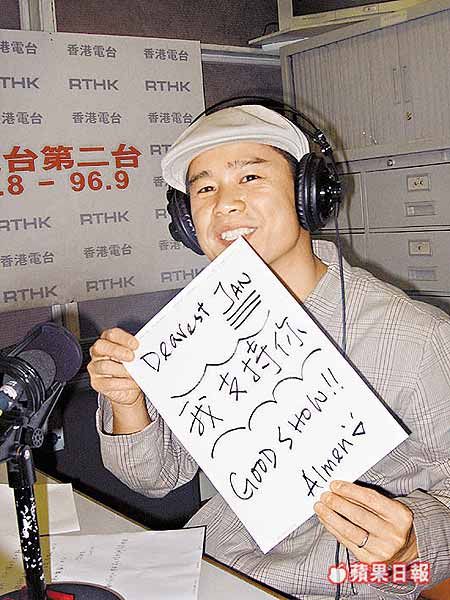 香港電台
香港電台
RTHK
RTHK
香港電台
台第二台
.8 – 96.9
RTHK
香港電台
RTHK
香港電台
香港電台
RTHK
RTHK
Dearest JAN
我支持你
GOOD SHOW!!
Almen
蘋果日報